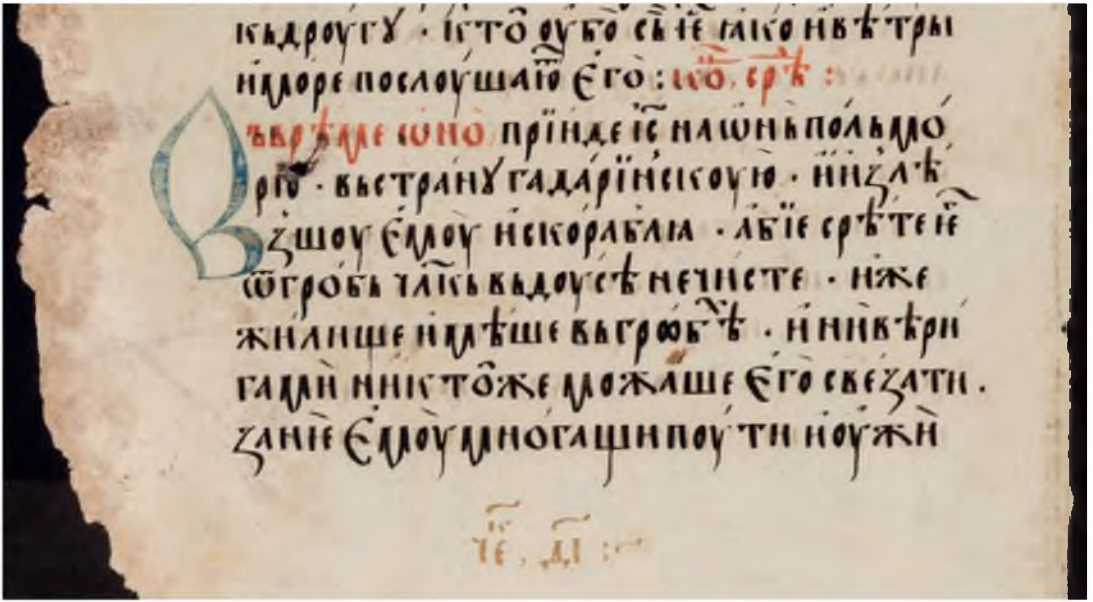 кьдроугꙋ · кто̂ оубо̀ сьѥ҇ ꙗко и вѣтры
и море послоушаю҇т Его̀ : ко҇н. срѣ҇ :
Въврѣме ѡно̀ прїиде і҃с на ѡнь поль мо̀
рꙗ · вьстранꙋ гадарїнскоую̀ · и излѣ
зшоу Емоу̀ искораблꙗ · абїе срѣте ѥ҇
ѿгробь чл҃кь вьдоусѣ нечисте · иже
жилище имѣше вьгробѣ҇х · и ни верѝ
гами никто̂же можаше Его̀ свезати .
занѥ̀ Емоу̀ многащи поути и оужѝ
че҇к . д҃і :